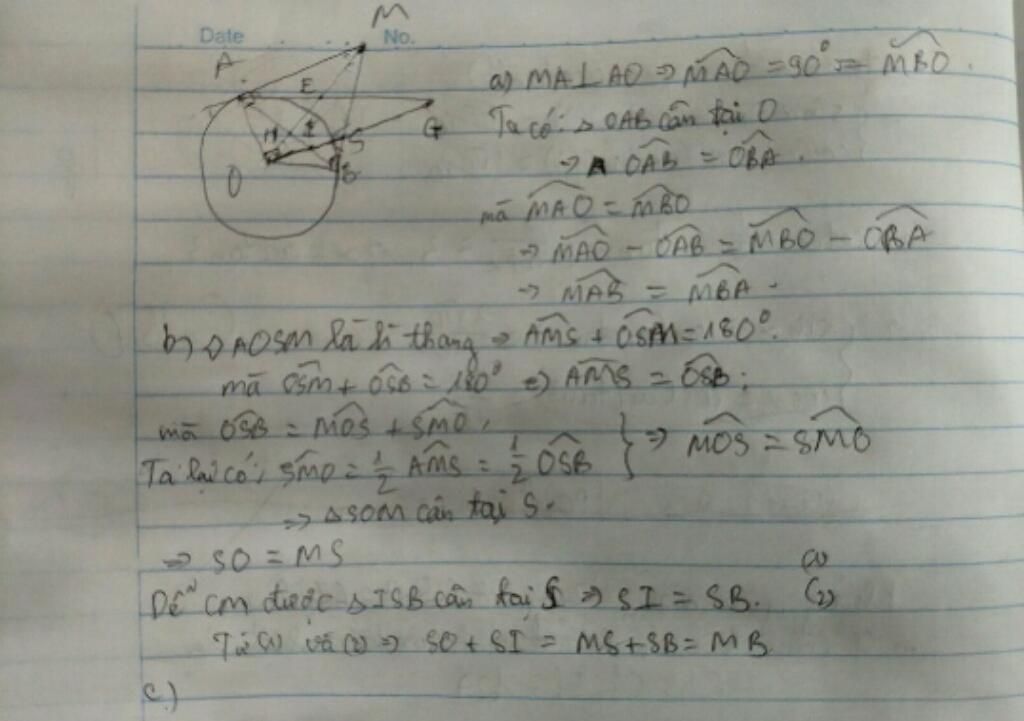 Date No.
M
A
E
G
H I S
O B
a) MA⊥AO ⇒ \widehat{MAO} = 90° = \widehat{MBO}.
Ta có: △ OAB cân tại O
⇒ \widehat{OAB} = \widehat{OBA}.
mà \widehat{MAO} = \widehat{MBO}
→ \widehat{MAO} - \widehat{OAB} = \widehat{MBO} - \widehat{OBA}
→ \widehat{MAB} = \widehat{MBA}.
b) ◇ AOSM là h thang ⇒ \widehat{AMS} + \widehat{OSM} = 180°.
mà \widehat{OSM} + \widehat{OSB} = 180° ⇒ \widehat{AMS} = \widehat{OSB};
mà \widehat{OSB} = \widehat{MOS} + \widehat{SMO},
Ta lại có; \widehat{SMO} = 1/2 \widehat{AMS} = 1/2 \widehat{OSB} } ⇒ \widehat{MOS} = \widehat{SMO}
⇒ △SOM cân tại S.
⇒ SO = MS (1)
Dễ CM được △ISB cân tại S ⇒ SI = SB. (2)
Từ (1) và (2) ⇒ SO + SI = MS + SB = MB
c.)